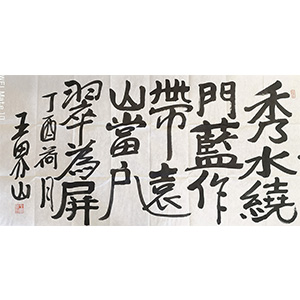 秀水繞
門藍作
帶遠
山當户
翠為屏
丁酉荷月
王界山